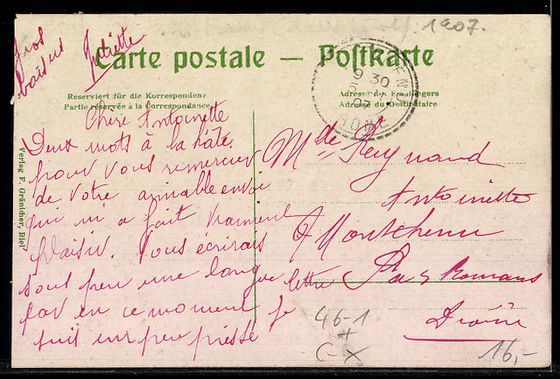 1907.
Gros
baisers
Juliette
Carte postale – Postkarte
Reserviert für die Korrespondenz
Partie réservée à la correspondance
Adresse des Empfängers
Adresse du Destinataire
9 30
07
DROME
Chère Antoinette
Deux mots à la hâte
pour vous remercier
de votre aimable envoi
qui m'a fait vraiment
plaisir. Vous écrirais
sous peu une longue lettre
car en ce moment je
suis un peu pressé
Mlle Reynaud
Antoinette
A Montchenu
Par Romans
Drôme
Verlag F. Gränicher, Biel
46-1
C-X
16,-